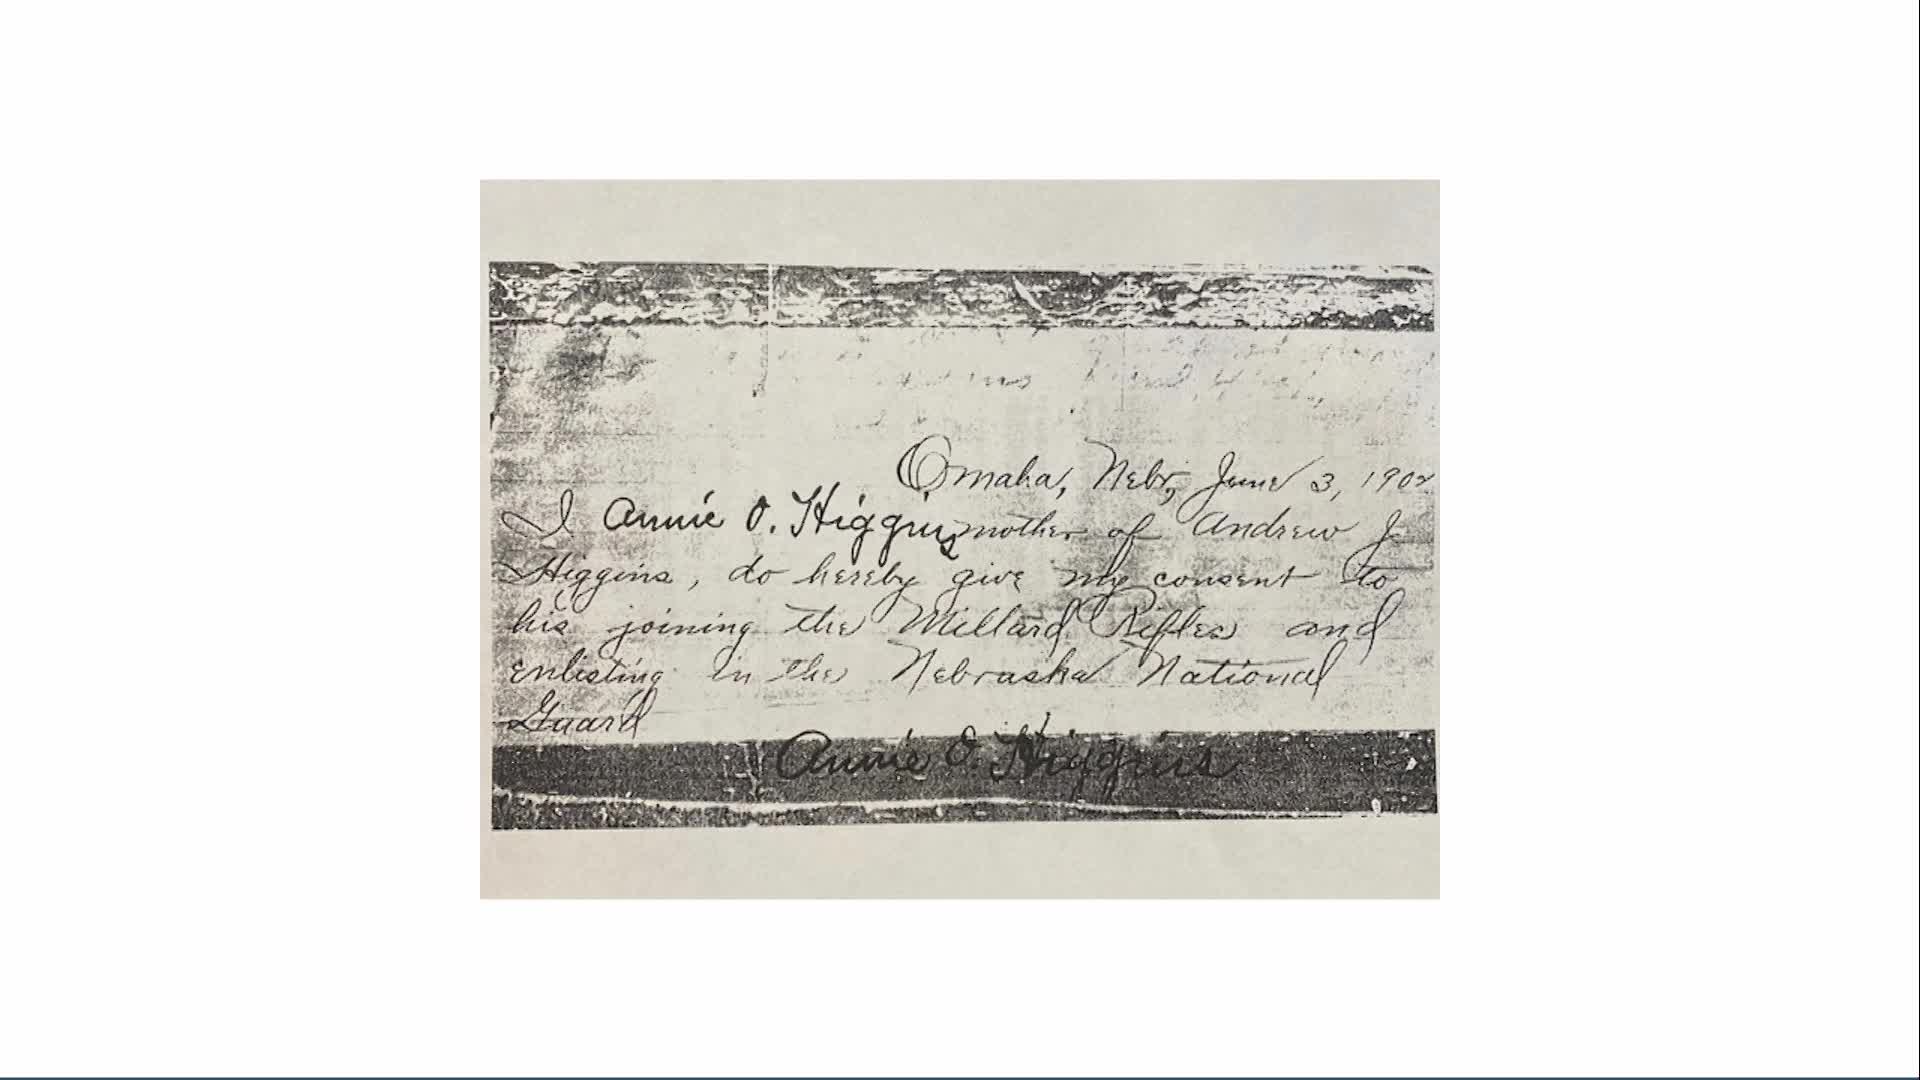 Omaha, Nebr, June 3, 1902
I Annie O. Higgins mother of Andrew J
Higgins, do hereby give my consent to
his joining the Millard Rifles and
enlisting in the Nebraska National
Guard
Annie O. Higgins